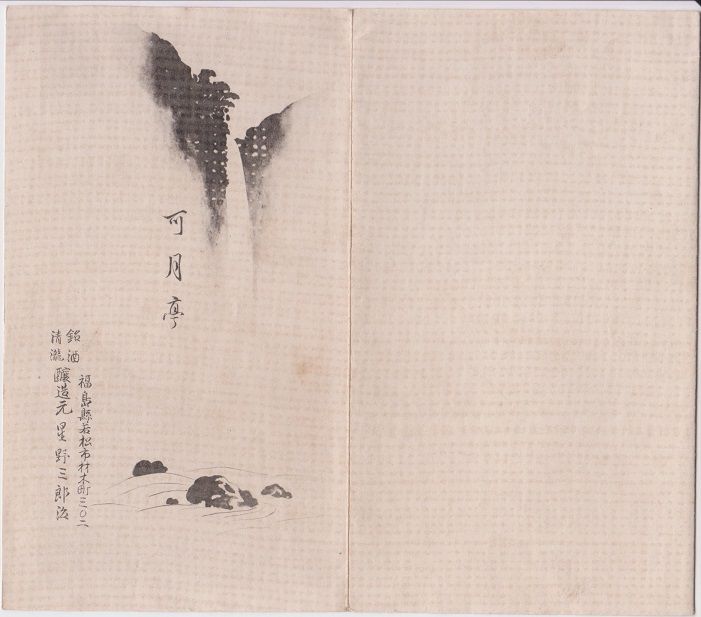 可月亭
福島縣若松市材木町三〇二
銘酒
清瀧
釀造元 星野三郎治